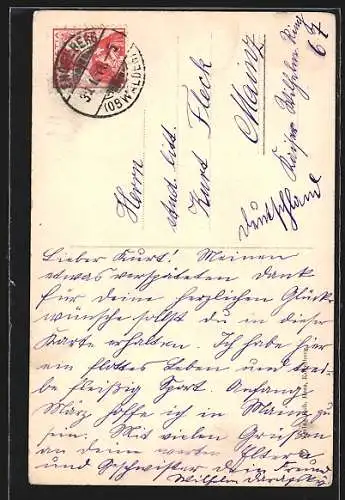 ENGELBERG
(OBWALDEN)
Herrn
stud. litt.
Kurt Fleck
Mainz
Kaiser Wilhelm Ring
67
Deutschland
Lieber Kurt! Meinen
etwas verspäteten Dank
für deine herzlichen Glück-
wünsche sollst du in dieser
Karte erhalten. Ich habe hier
ein flottes Leben und trei-
be fleißig Sport. Anfang
März hoffe ich in Mainz zu
sein. Mit vielen Grüßen
an deine werten Eltern
und Geschwister dein Freund
Wilhelm